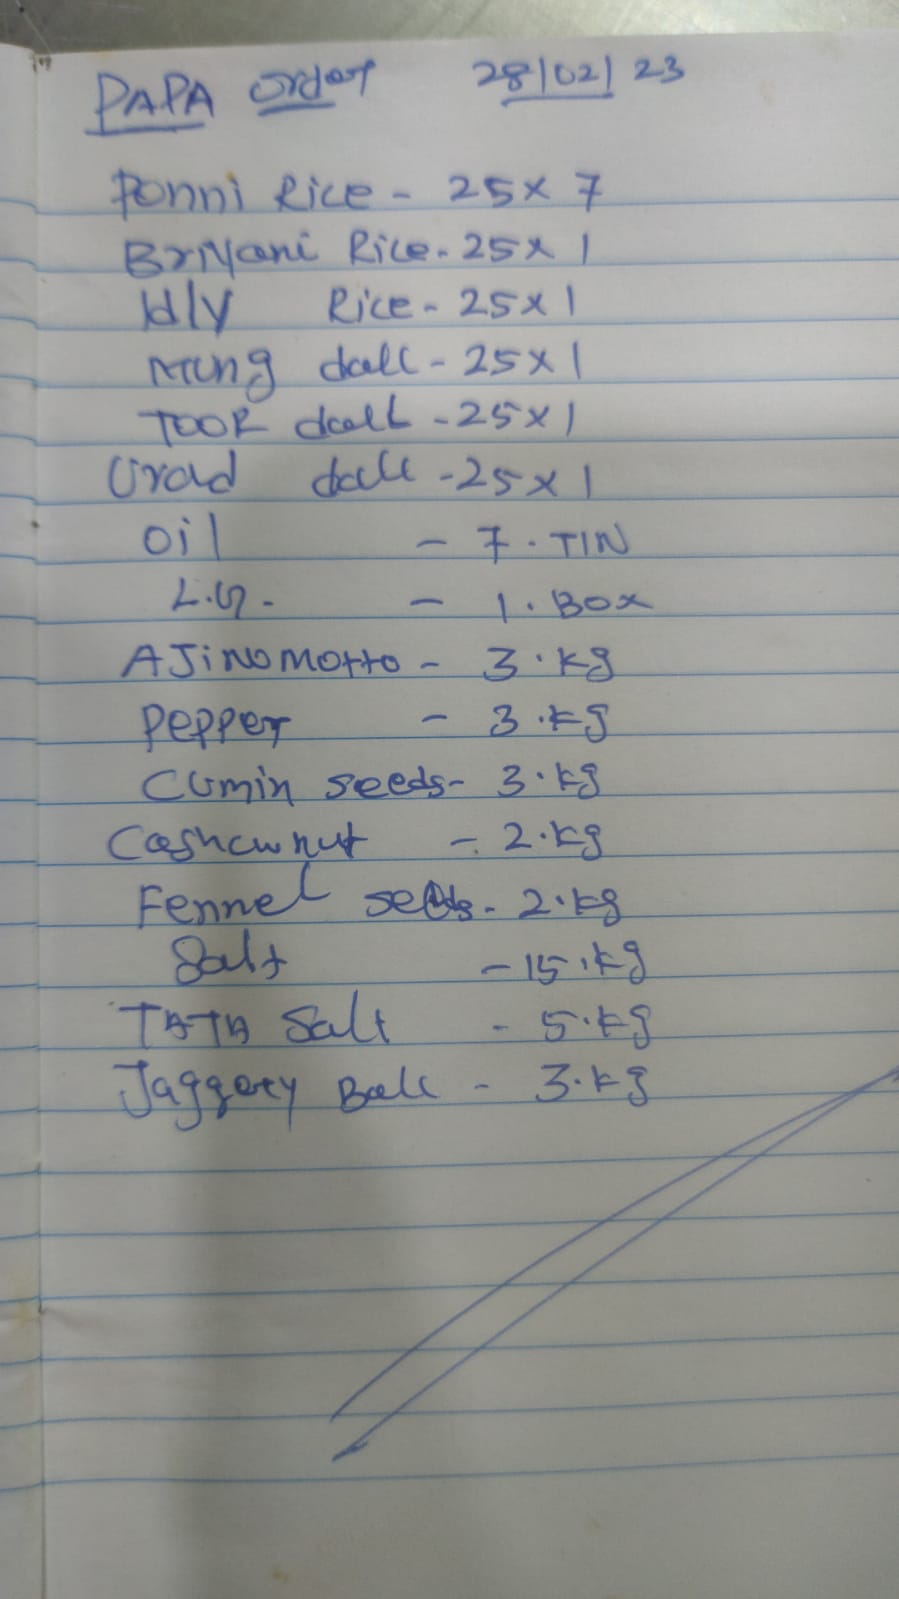 PAPA order 28/02/23
Ponni Rice - 25x7
Briyani Rice - 25x1
Idly Rice - 25x1
Mung dall - 25x1
TOOR dall - 25x1
Urad dall - 25x1
Oil - 7. TIN
L.G. - 1. Box
AJiNOMOtto - 3. kg
Pepper - 3. kg
Cumin seeds - 3. kg
Cashewnut - 2. kg
Fennel seeds - 2. kg
Salt - 15. kg
TATA Salt - 5. kg
Jaggery Ball - 3. kg